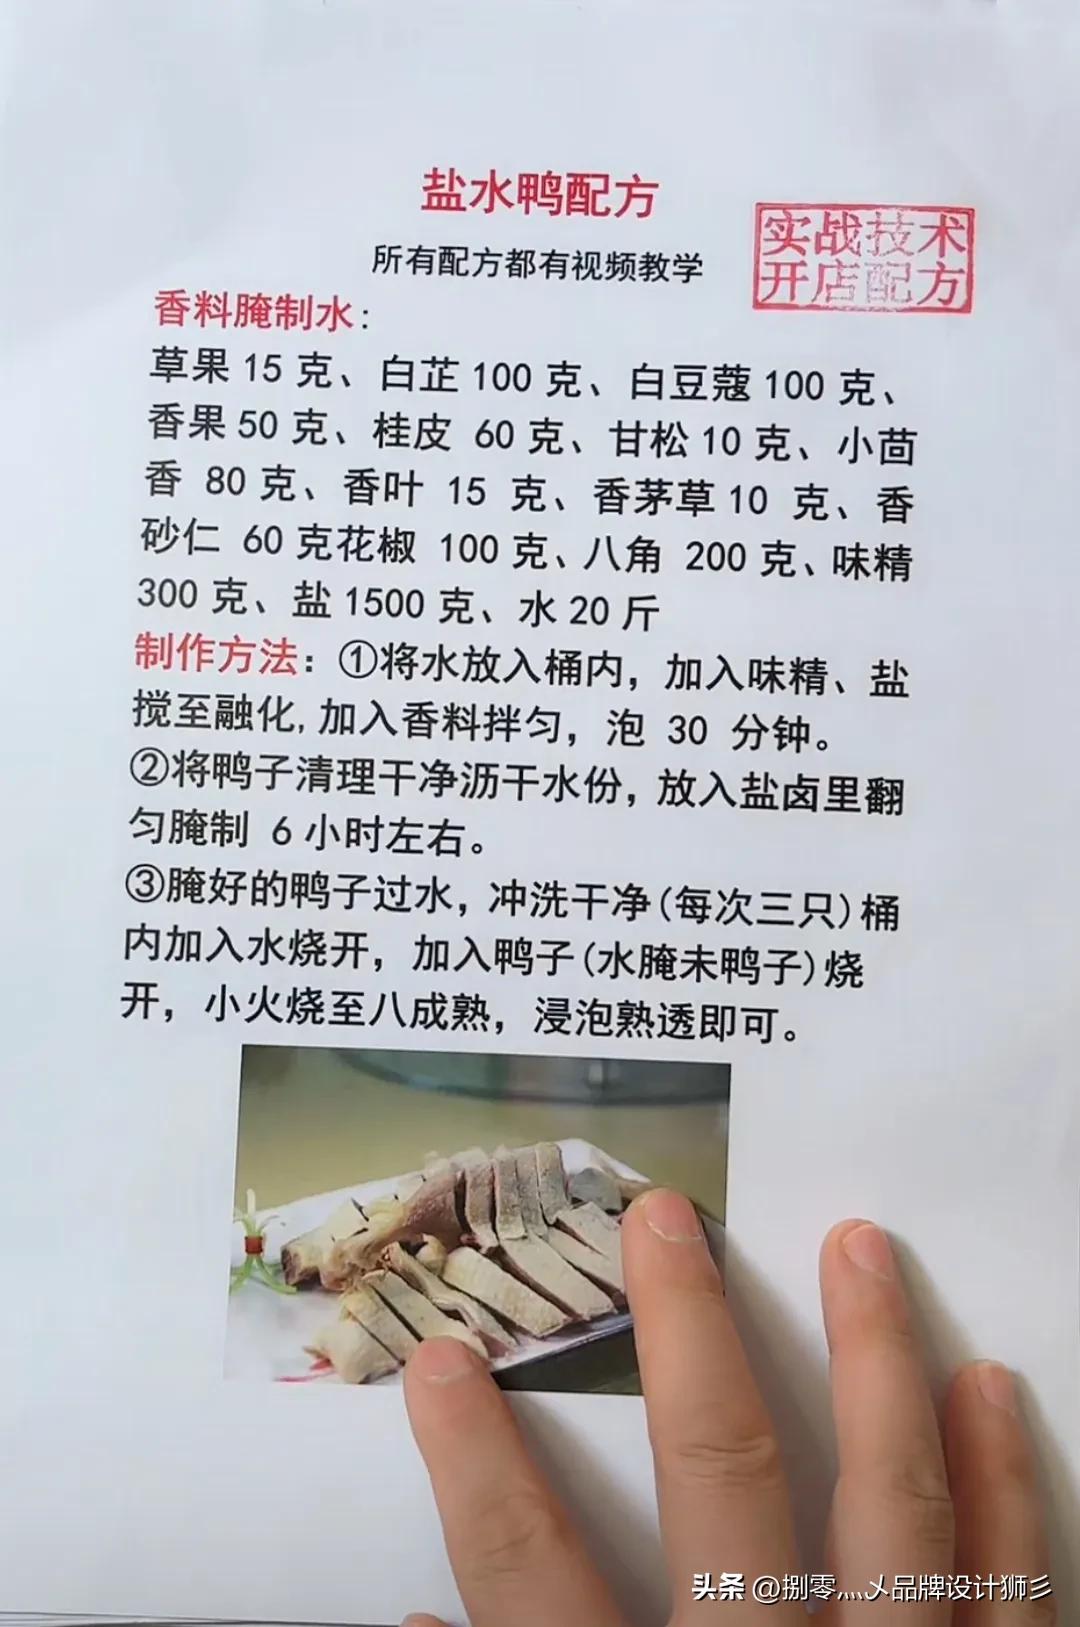 盐水鸭配方
所有配方都有视频教学
实战技术
开店配方
香料腌制水:
草果 15 克、白芷 100 克、白豆蔻 100 克、
香果 50 克、桂皮 60 克、甘松 10 克、小茴
香 80 克、香叶 15 克、香茅草 10 克、香
砂仁 60 克花椒 100 克、八角 200 克、味精
300 克、盐 1500 克、水 20 斤
制作方法：①将水放入桶内，加入味精、盐
搅至融化,加入香料拌匀，泡 30 分钟。
②将鸭子清理干净沥干水份，放入盐卤里翻
匀腌制 6 小时左右。
③腌好的鸭子过水，冲洗干净(每次三只)桶
内加入水烧开，加入鸭子(水腌未鸭子)烧
开，小火烧至八成熟，浸泡熟透即可。
头条 @捌零灬乄品牌设计狮彡